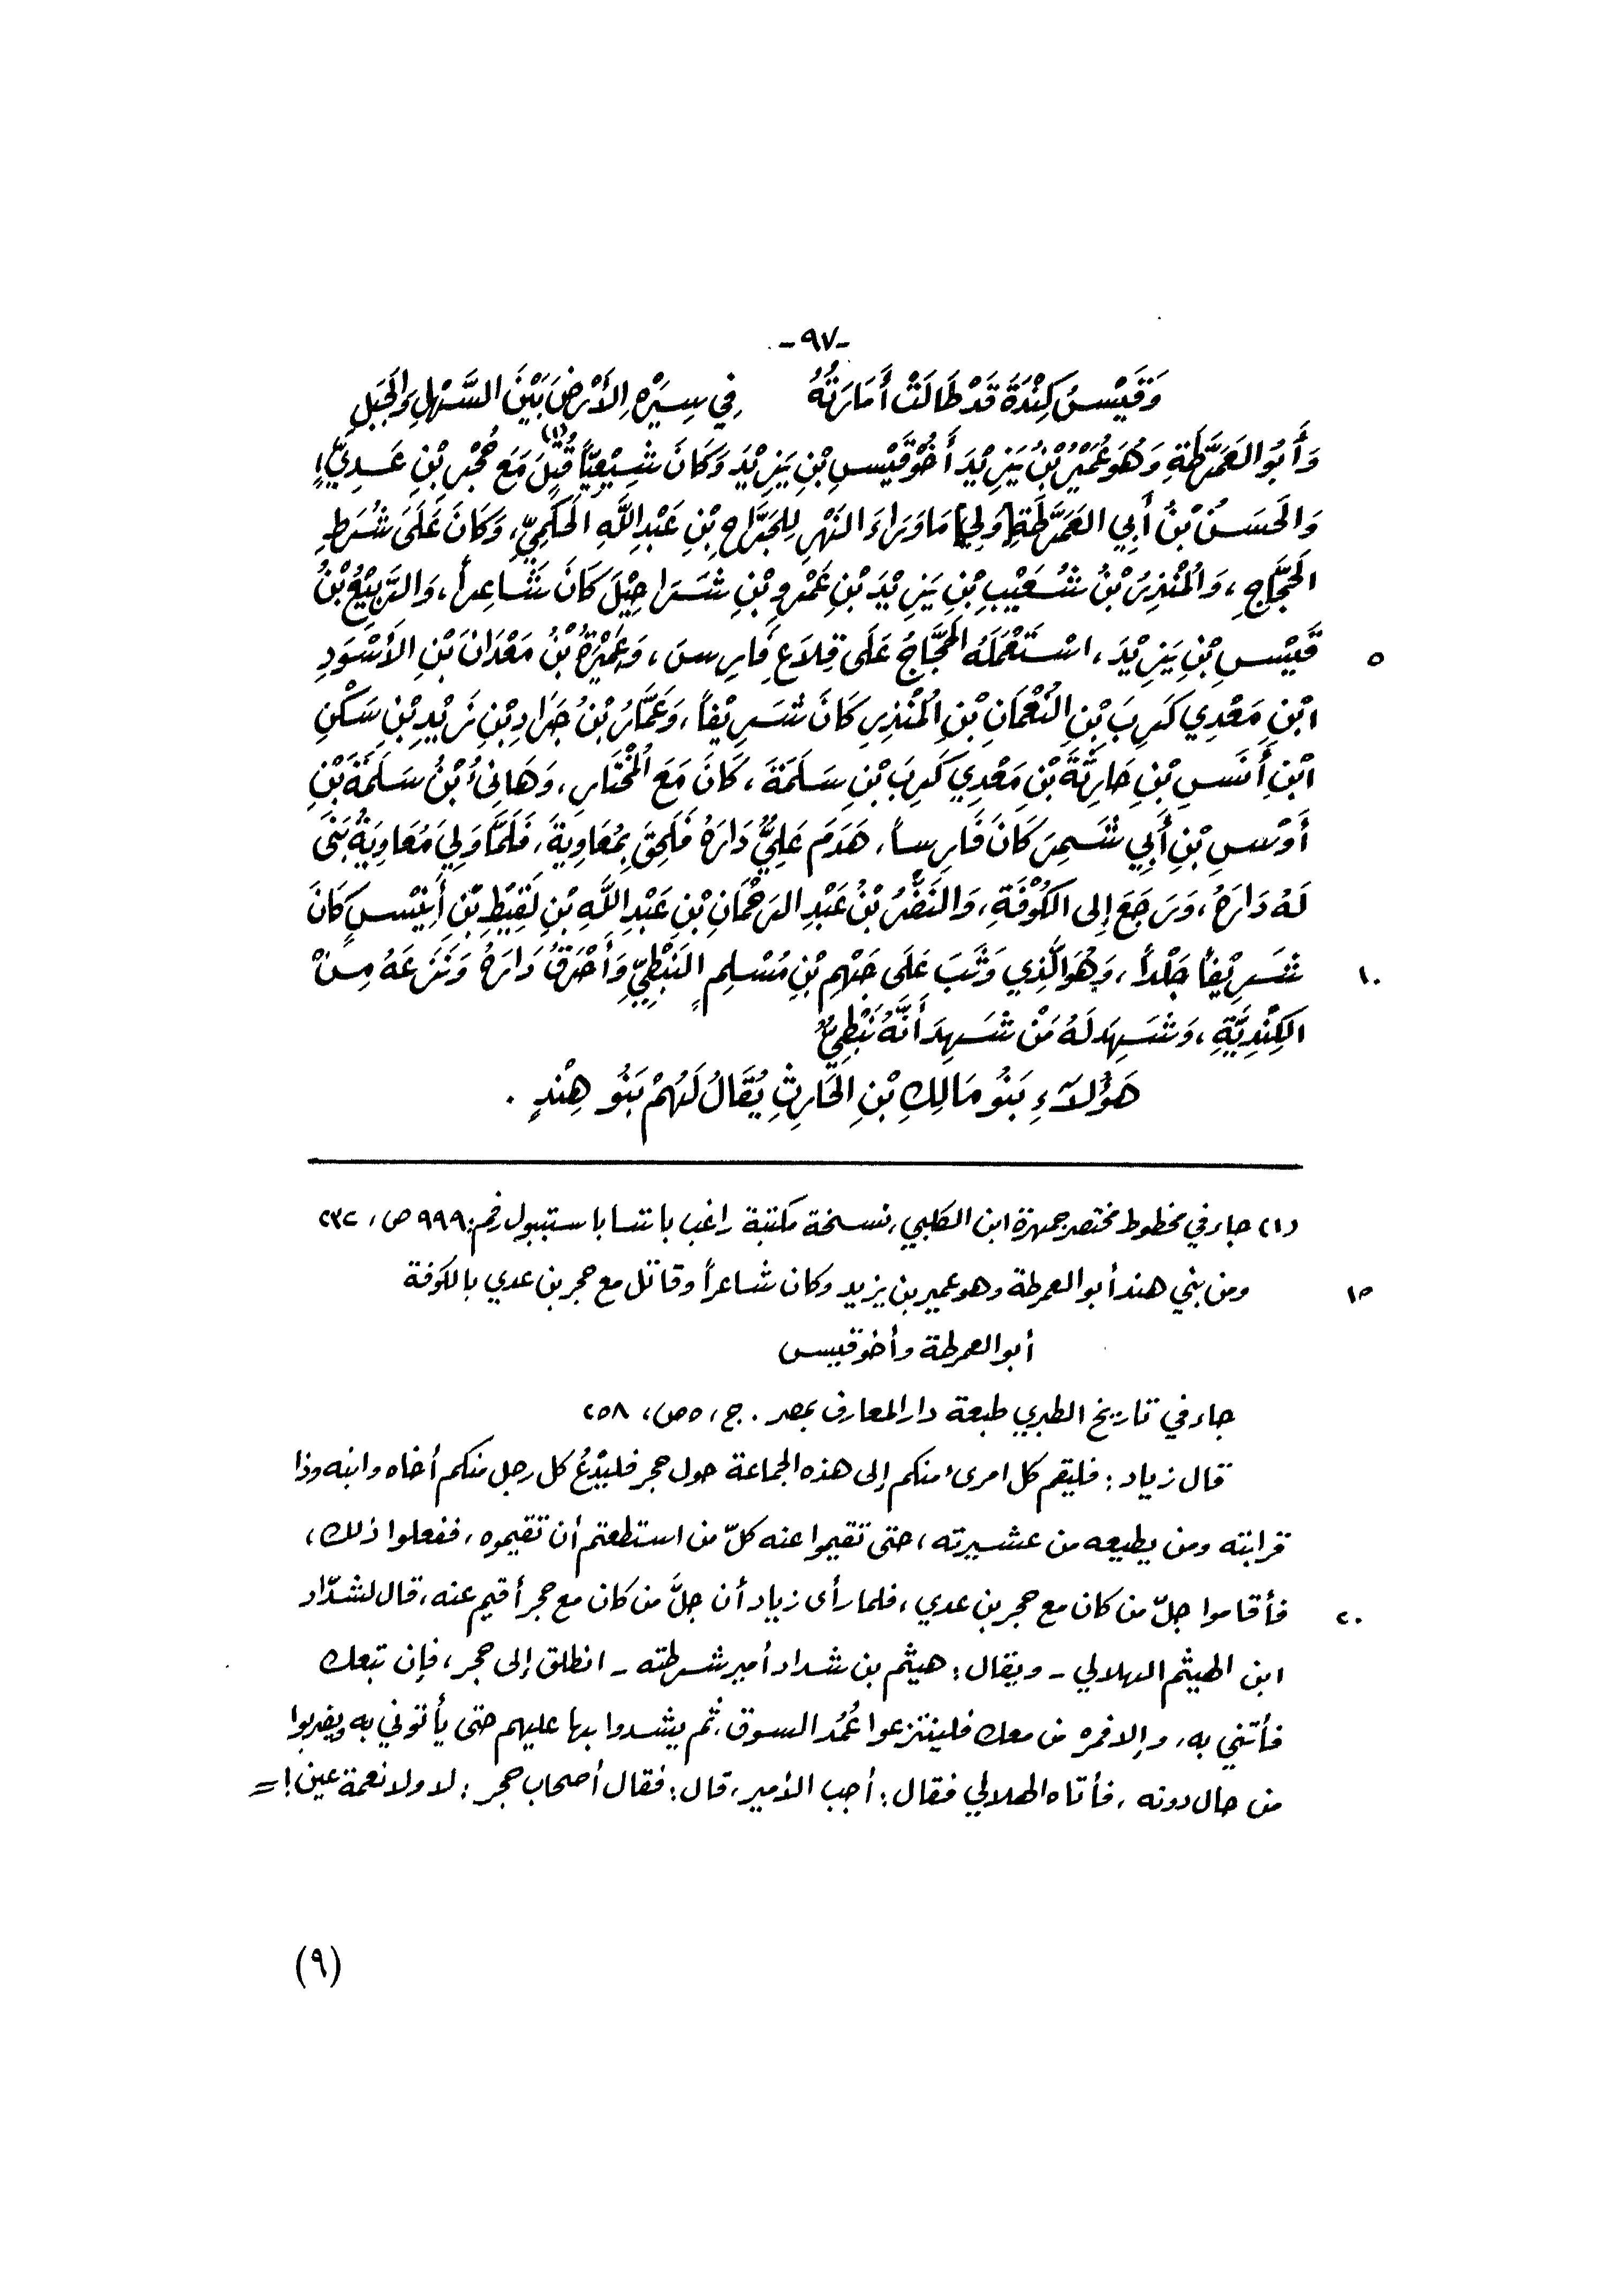 -٩٧-
وَقَيْسُ كِنْدَةَ قَدْ طَالَتْ أَمَارَتُهُ    فِي سِيْرَةِ الأَرْضِ بَيْنَ السَّهْلِ وَالجَبَلِ
وَأَبُو العَمَرَّطَةِ وَهُوَ عُمَيْرُ بْنُ يَزِيْدَ أَخُو قَيْسِ بْنِ يَزِيْدَ وَكَانَ شِيْعِيّاً قُتِلَ(١) مَعَ حُجْرِ بْنِ عَدِيٍّ،
وَالحَسَنُ بْنُ أَبِي العَمَرَّطَةِ [وَلِيَ] مَا وَرَاءَ النَّهْرِ لِلْجَرَّاحِ بْنِ عَبْدِ اللَّهِ الحَكَمِيِّ، وَكَانَ عَلَى شُرَطِ
الحَجَّاجِ، وَالمُنْذِرُ بْنُ شُعَيْبِ بْنِ يَزِيْدَ بْنِ عَمْرِو بْنِ شَرَاحِيْلَ كَانَ شَاعِراً، وَالرَّبِيْعُ بْنُ
٥ قَيْسِ بْنِ يَزِيْدَ، اسْتَعْمَلَهُ الحَجَّاجُ عَلَى قِلَاعِ فَارِسَ، وَعَمِيْرَةُ بْنُ مَعْدَانَ بْنِ الأَسْوَدِ
ابْنِ مَعْدِي كَرِبَ بْنِ النُّعْمَانِ بْنِ المُنْذِرِ كَانَ شَرِيْفاً، وَعَمَّارُ بْنُ جَرَادِ بْنِ زَيْدِ بْنِ سَكْنِ
ابْنِ أَنَسِ بْنِ حَارِثَةَ بْنِ مَعْدِي كَرِبَ بْنِ سَلَمَةَ، كَانَ مَعَ المُخْتَارِ، وَهَانِئُ بْنُ سَلَمَةَ بْنِ
أَوْسِ بْنِ أَبِي شَمِرَ كَانَ فَارِساً، هَدَمَ عَلِيٌّ دَارَهُ فَلَحِقَ بِمُعَاوِيَةَ، فَلَمَّا وَلِيَ مُعَاوِيَةُ بَنَى
لَهُ دَارَهُ، وَرَجَعَ إِلى الكُوْفَةِ، وَالنَّضْرُ بْنُ عَبْدِ الرَّحْمَانِ بْنِ عَبْدِ اللَّهِ بْنِ لَقِيْطِ بْنِ أُنَيْسٍ كَانَ
١٠ شَرِيْفاً جَلْداً، وَهُوَ الَّذِي وَثَبَ عَلَى جَهْمِ بْنِ مُسْلِمٍ النَّبْطِيِّ وَأَحْرَقَ دَارَهُ وَنَزَعَهُ مِنْ
الكِنْدِيَّةِ، وَشَهِدَ لَهُ مَنْ شَهِدَ أَنَّهُ نَبْطِيٌّ
هَؤُلَآءِ بَنُو مَالِكِ بْنِ الحَارِثِ يُقَالُ لَهُمْ بَنُو هِنْدٍ .
(١) جاء في مخطوط مختصر جمهرة ابن الكلبي، نسخة مكتبة راغب باشا باستبول رقم: ٩٩٩ ص، ٢٣٢
١٥ ومن بني هند أبو العمرطة وهو عمير بن يزيد وكان شاعراً وقاتل مع حجر بن عدي بالكوفة
أبو العمرطة وأخو قيس
جاء في تاريخ الطبري طبعة دار المعارف بمصر. ج، ٥ ص، ٢٥٨
قال زياد: فليقم كل امرئ منكم إلى هذه الجماعة حول حجر فليدْعُ كل رجل منكم أخاه وابنه وذا
قرابته ومن يطيعه من عشيرته، حتى تقيموا عنه كلّ من استطعتم أن تقيموه، ففعلوا ذلك،
٢٠ فأقاموا جلّ من كان مع حجر بن عدي، فلما رأى زياد أن جلَّ من كان مع حجر أقيم عنه، قال لشدّاد
ابن الهيثم الهلالي - ويقال: هيثم بن شداد أمير شرطته - انطلق إلى حجر، فإن تبعك
فأتني به، وإلا فمره من معك فلينتزعوا عُمُد السوق، ثم يشدوا بها عليهم حتى يأتوني به ويضربوا
من حال دونه، فأتاه الهلالي فقال: أجب الأمير، قال: فقال أصحاب حجر: لا ولا نعمة عين! =
(٩)